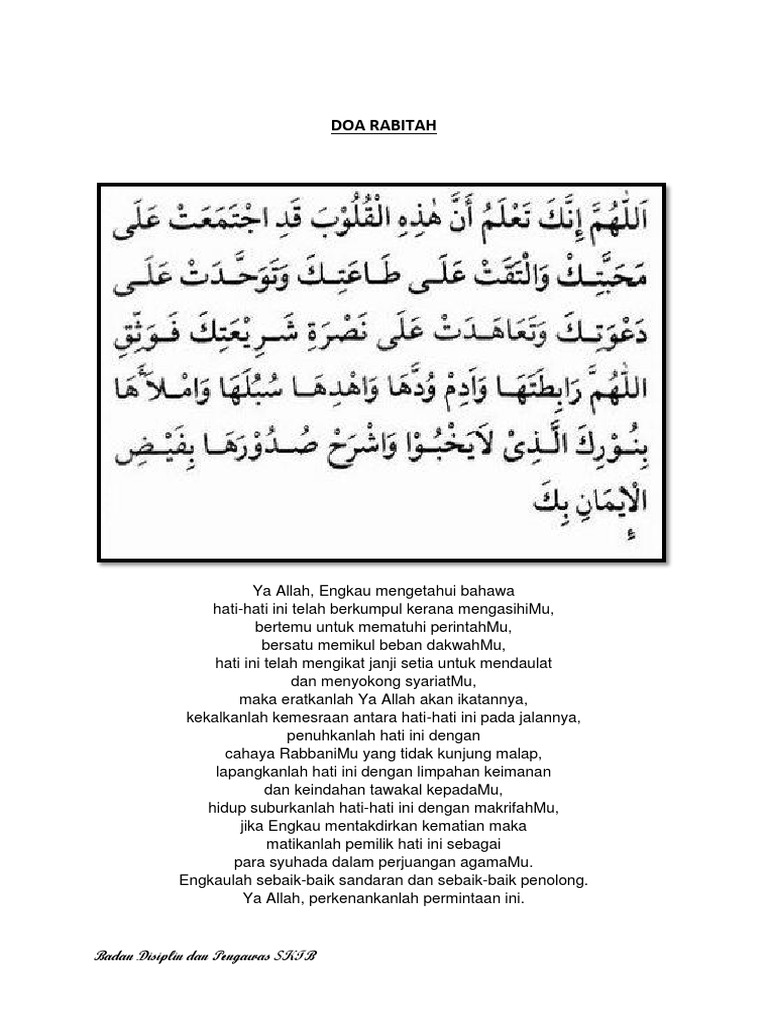 DOA RABITAH
اَللّٰهُمَّ إِنَّكَ تَعْلَمُ أَنَّ هٰذِهِ الْقُلُوْبَ قَدِ اجْتَمَعَتْ عَلَى
مَحَبَّتِكَ وَالْتَقَتْ عَلَى طَاعَتِكَ وَتَوَحَّدَتْ عَلَى
دَعْوَتِكَ وَتَعَاهَدَتْ عَلَى نَصْرَةِ شَرِيْعَتِكَ فَوَثِّقِ
اللّٰهُمَّ رَابِطَتَهَا وَاَدِمْ وُدَّهَا وَاهْدِهَا سُبُلَهَا وَامْلَأْهَا
بِنُوْرِكَ الَّذِيْ لَايَخْبُوْا وَاشْرَحْ صُدُوْرَهَا بِفَيْضِ
الْإِيمَانِ بِكَ
Ya Allah, Engkau mengetahui bahawa
hati-hati ini telah berkumpul kerana mengasihiMu,
bertemu untuk mematuhi perintahMu,
bersatu memikul beban dakwahMu,
hati ini telah mengikat janji setia untuk mendaulat
dan menyokong syariatMu,
maka eratkanlah Ya Allah akan ikatannya,
kekalkanlah kemesraan antara hati-hati ini pada jalannya,
penuhkanlah hati ini dengan
cahaya RabbaniMu yang tidak kunjung malap,
lapangkanlah hati ini dengan limpahan keimanan
dan keindahan tawakal kepadaMu,
hidup suburkanlah hati-hati ini dengan makrifahMu,
jika Engkau mentakdirkan kematian maka
matikanlah pemilik hati ini sebagai
para syuhada dalam perjuangan agamaMu.
Engkaulah sebaik-baik sandaran dan sebaik-baik penolong.
Ya Allah, perkenankanlah permintaan ini.
Badan Disiplin dan Pengawas SKIB